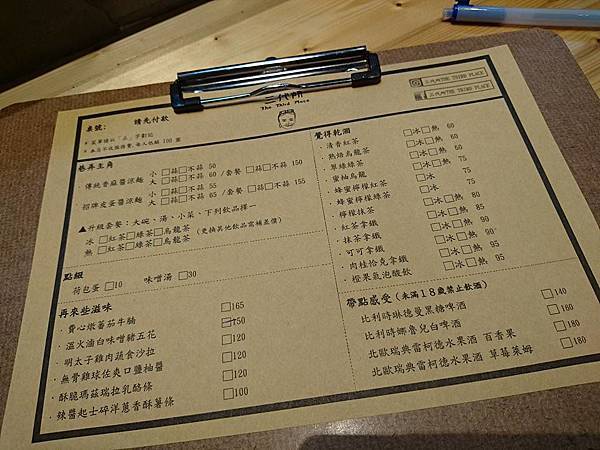 The Third Place
三代所THE THIRD PLACE
三代所THE THIRD PLACE
桌號:
請先付款
巷弄主角
・傳統香麻醬涼麵
小 □蒜□不蒜 50
大 □蒜□不蒜 60 /套餐 □蒜□不蒜 150
・招牌皮蛋醬涼麵
小 □蒜□不蒜 55
大 □蒜□不蒜 65 /套餐 □蒜□不蒜 155
▲升級套餐:大碗、湯、小菜、下列飲品擇一
冰 □紅茶□綠茶□烏龍茶
熱 □紅茶□綠茶□烏龍茶
(更換其他飲品需補差價)
點綴
荷包蛋 □10
味噌湯 □30
再來些滋味
・費心燉蕃茄牛腩 □165
・溫火滷白味噌豬五花 □150
・明太子雞肉蔬食沙拉 □120
・無骨雞球佐爽口鹽柚醬 □120
・酥脆瑪茲瑞拉乳酪條 □120
・辣醬起士碎洋蔥香酥薯條 □100
覺得乾涸
・清香紅茶 □冰□熱 60
・熱焙烏龍茶 □冰□熱 60
・翠綠綠茶 □冰□熱 60
・蜜柚烏龍 □冰 75
・蜂蜜檸檬紅茶 □冰 75
・蜂蜜檸檬綠茶 □冰 75
・檸檬抹茶 □冰 75
・紅茶拿鐵 □冰□熱 80
・抹茶拿鐵 □冰□熱 85
・可可拿鐵 □冰□熱 90
・肉桂恰克拿鐵 □冰□熱 90
・橙果氣泡酸飲 □冰 95
帶點感受(未滿18歲禁止飲酒)
比利時琳德曼黑糖啤酒 □140
比利時娜魯兒白啤酒 □160
北歐瑞典雷柯德水果酒 百香果 □180
北歐瑞典雷柯德水果酒 草莓萊姆 □180